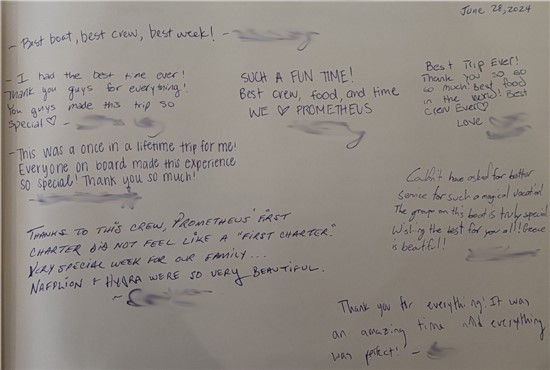 June 28, 2024
- Best boat, best crew, best week! -
- I had the best time ever!
Thank you guys for everything!
You guys made this trip so
special ♡ -
SUCH A FUN TIME!
Best crew, food, and time
WE ♡ PROMETHEUS
Best Trip Ever!
Thank you so so
so much! best food
in the world! Best
Crew Ever ♡
LOVE
- This was a once in a lifetime trip for me!
Everyone on board made this experience
so special! Thank you so much!
Couldn't have asked for better
service for such a magical vacation
The group on this boat is truly special
Wishing the best for you all! Greece
is beautiful!
THANKS TO THIS CREW, PROMETHEUS' FIRST
CHARTER DID NOT FEEL LIKE A "FIRST CHARTER".
VERY SPECIAL WEEK FOR OUR FAMILY...
NAFPLION + HYDRA WERE SO VERY BEAUTIFUL.
~
Thank you for everything! It was
an amazing time and everything
was perfect! -